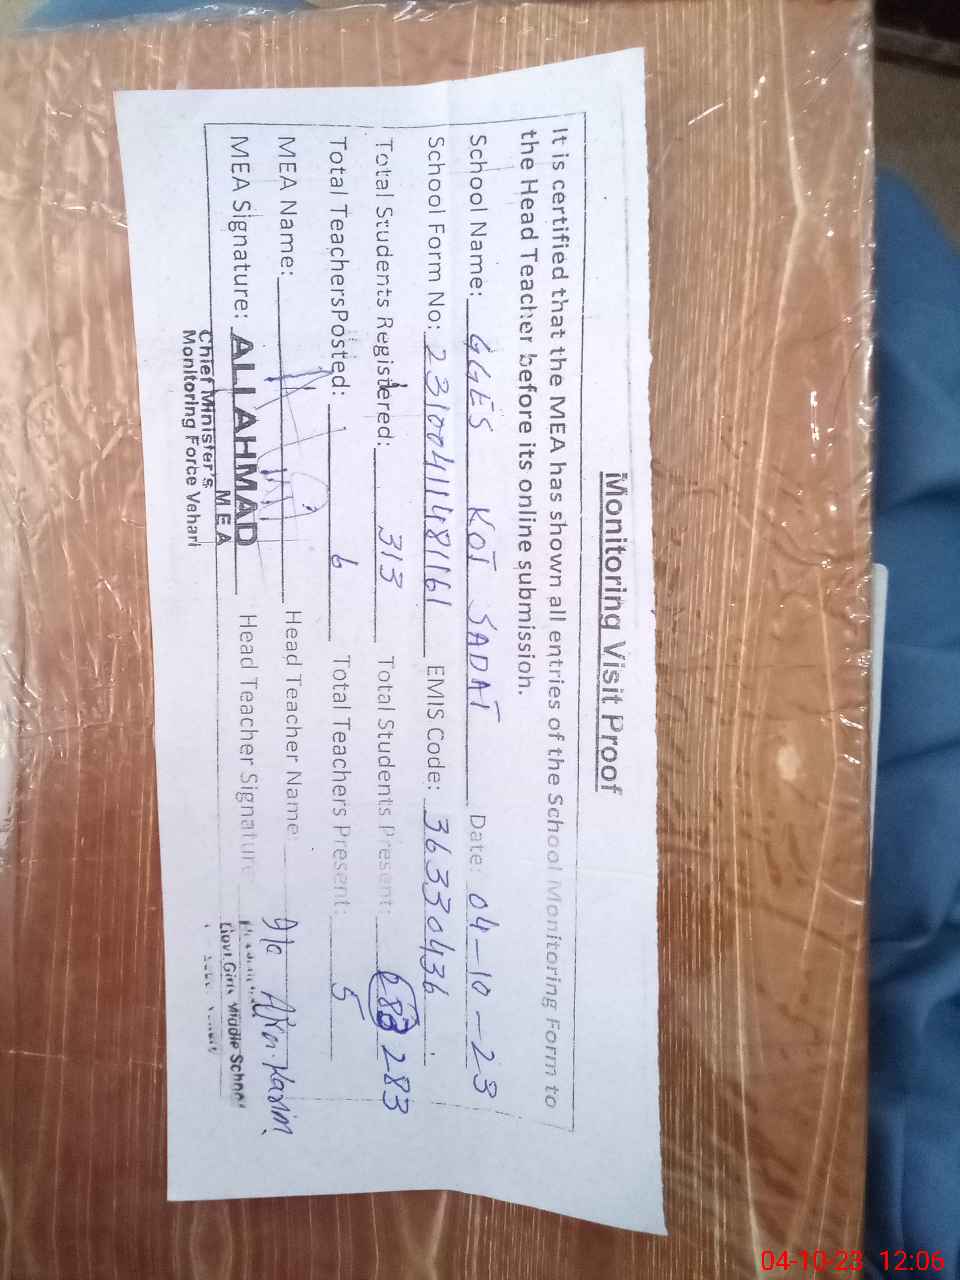 Monitoring Visit Proof
It is certified that the MEA has shown all entries of the School Monitoring Form to
the Head Teacher before its online submission.
School Name: GGES KOT SADAT Date: 04-10-23
School Form No: 23100411481161 EMIS Code: 36330436
Total Students Registered: 313 Total Students Present: 283
Total TeachersPosted: 6 Total Teachers Present: 5
MEA Name: Head Teacher Name
MEA Signature: ALI AHMAD Head Teacher Signature
MEA
Chief Minister's
Monitoring Force Vehari
Govt Girls Middle School
04-10-23 12:06